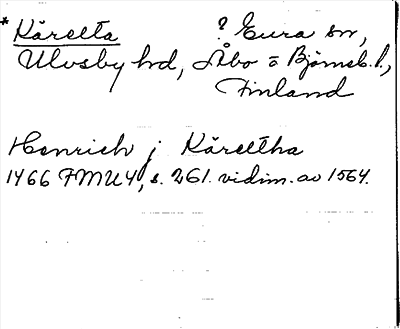 * Käretta ? Eura sn,
Ulvsby hd, Åbo o Björneb. l.,
Finland
Henrich j Kärettha
1466 FMU 4, s. 261. vidim. av 1564.